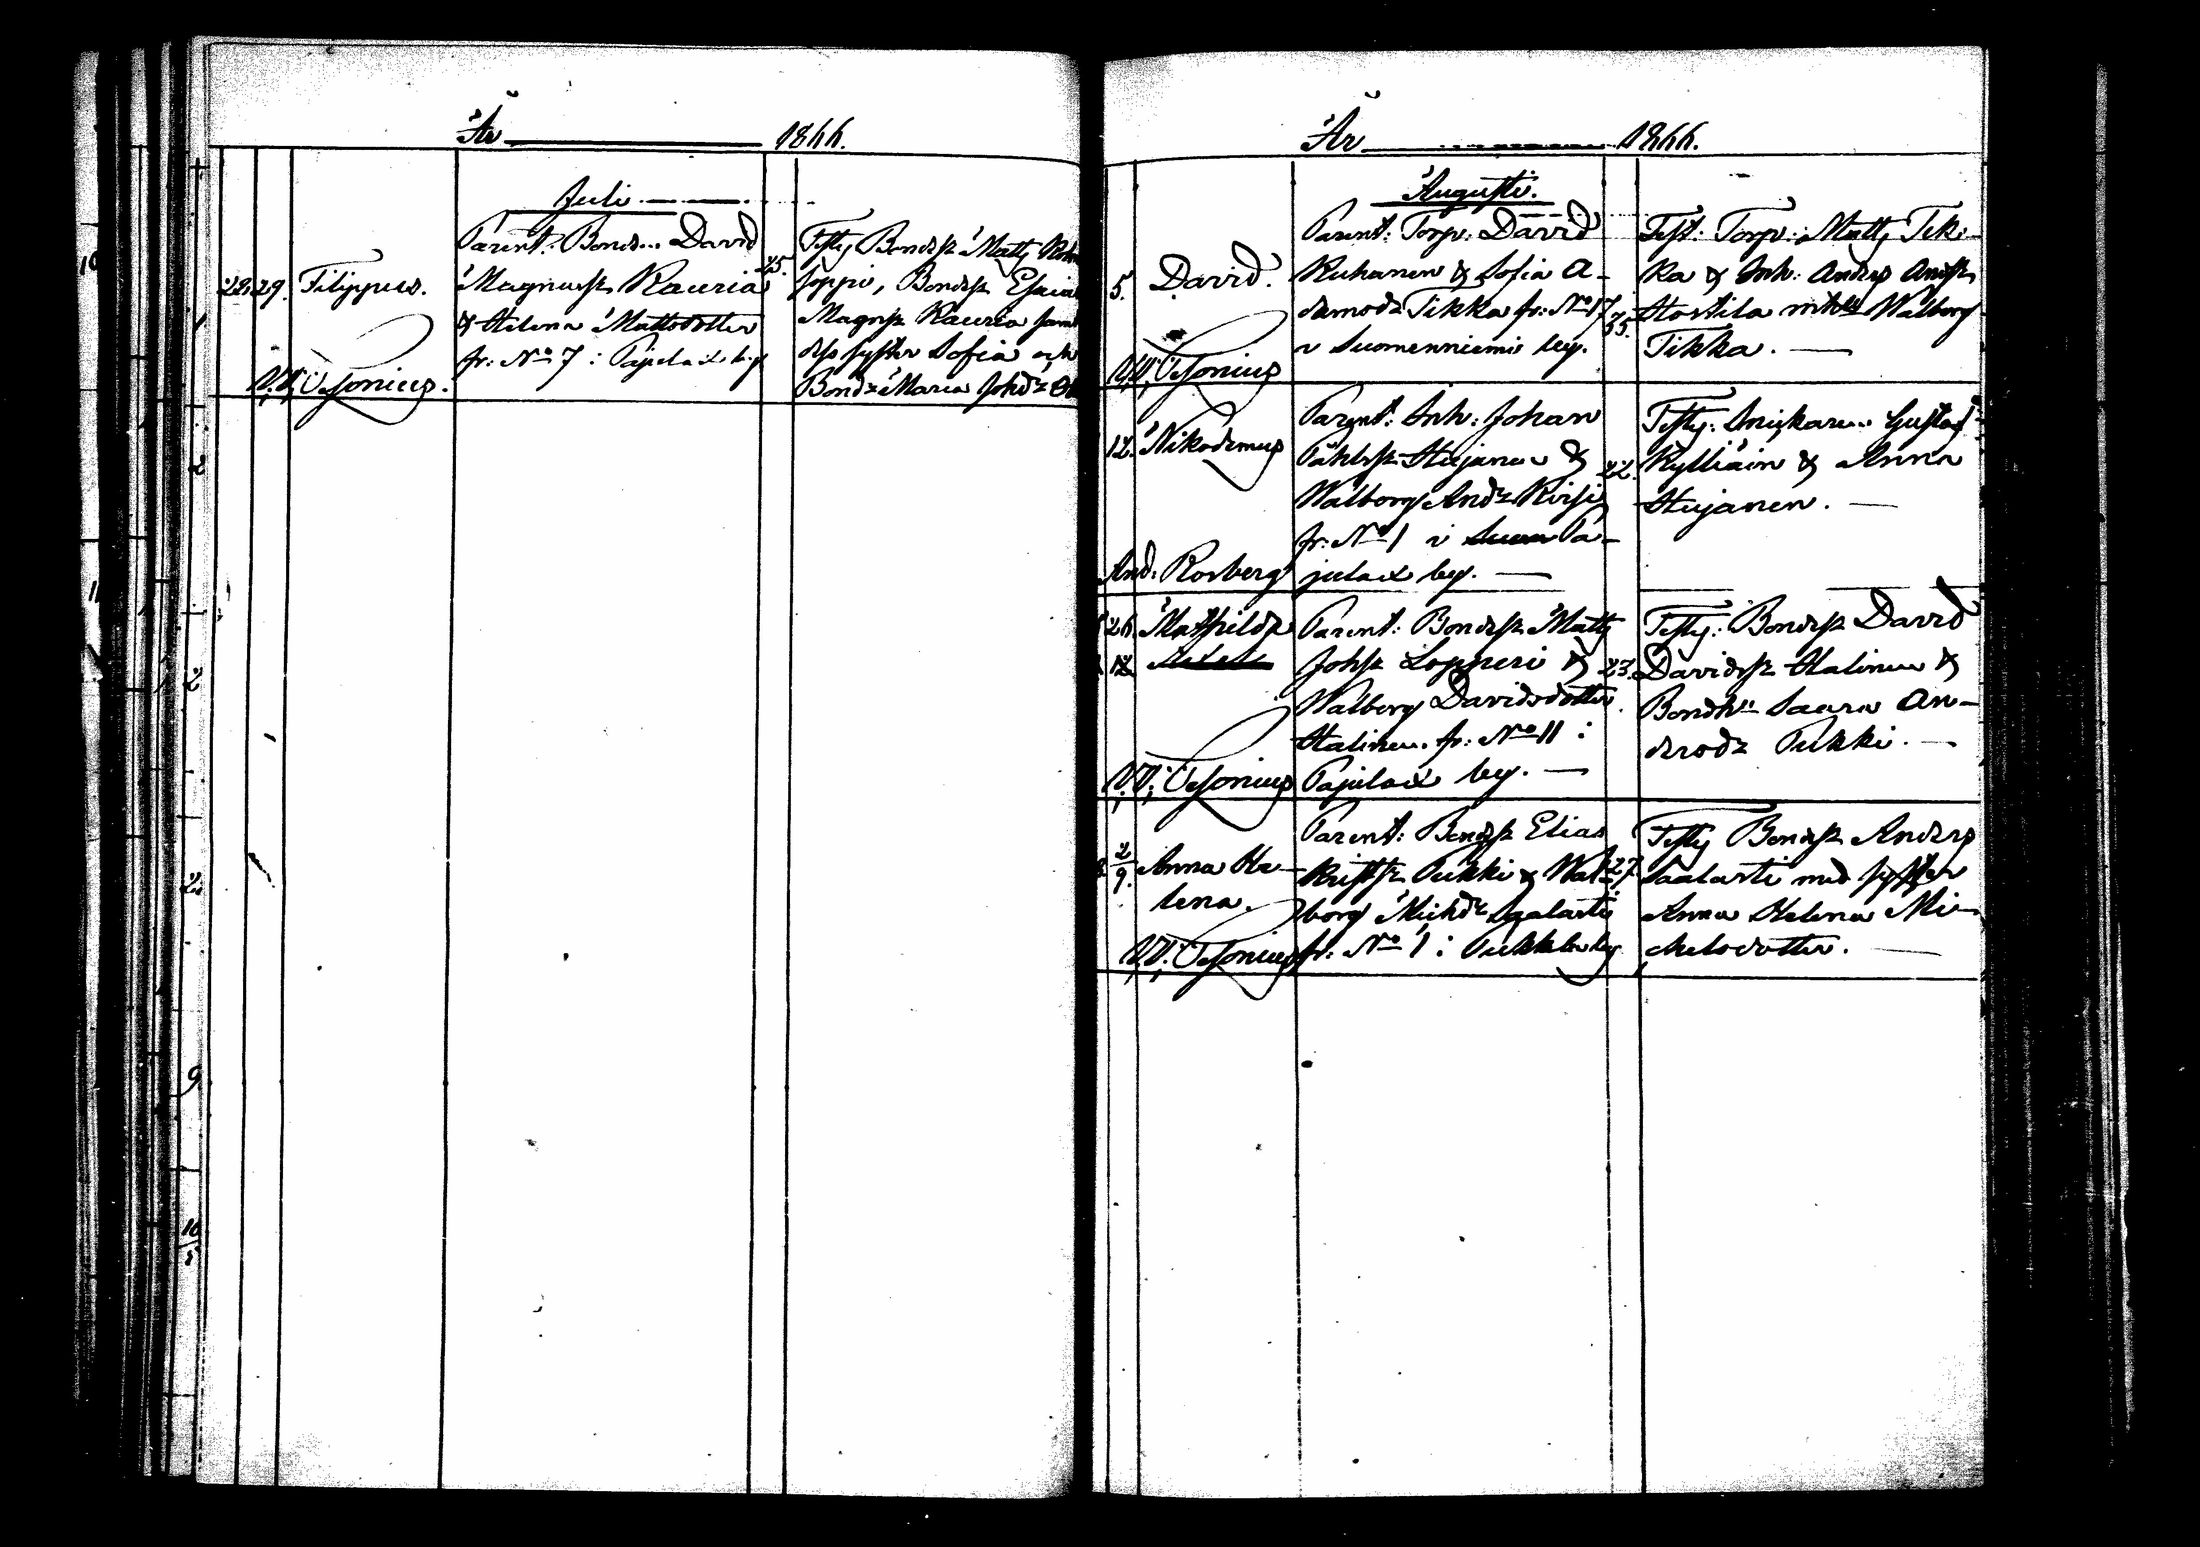 År 1866.
Juli
22. 29. Filippus.
V. V. Clesonius.
Parent: Bonds. David
Magnussr Rauria
& Helena Mattsdotter
fr: No 7 i Pajula by
25.
Testy Bondsr Matts
Joppi, Bondsr Esaias
Magnsr Rauria samt
dess syster Sofia och
Bondz Maria Johdr
År 1866.
Augusti.
5. David.
V. V. Clesonius
Parent: Torp: David
Kuhanen & Sofia A-
damsdr Tikka fr: No 17
i Suomenniemi by.
35.
Test: Torp: Matts Tik-
ka & Inh: Anders Andsr
Hostila m Walborg
Tikka.
12. Nikodemus
And: Rosberg
Parent: Inh: Johan
Påhlsr Hujanen &
Walborg Andr Kirsi
fr: No 1 i Pa-
jula by.
22.
Testy: Snickaren Gustaf
Kylliäin & Anna
Hujanen.
26. Mathilda
12
V. V. Clesonius
Parent: Bondsr Matts
Johsr Lopperi &
Walborg Davidsdotter
Halinen fr: No 11 i
Pajula by.
23.
Testy: Bondsr David
Davidsr Halinen &
Bondh Saara An-
drsdr Pukki.
2/9. Anna He-
lena.
V. V. Clesonius
Parent: Bondsr Elias
Kristsr Pukki & Wal-
borg Michdr Saalasti
fr: No 1 i Pukkila by
27
Testy Bondsr Anders
Saalasti med syster
Anna Helena Mi-
chelsdotter.